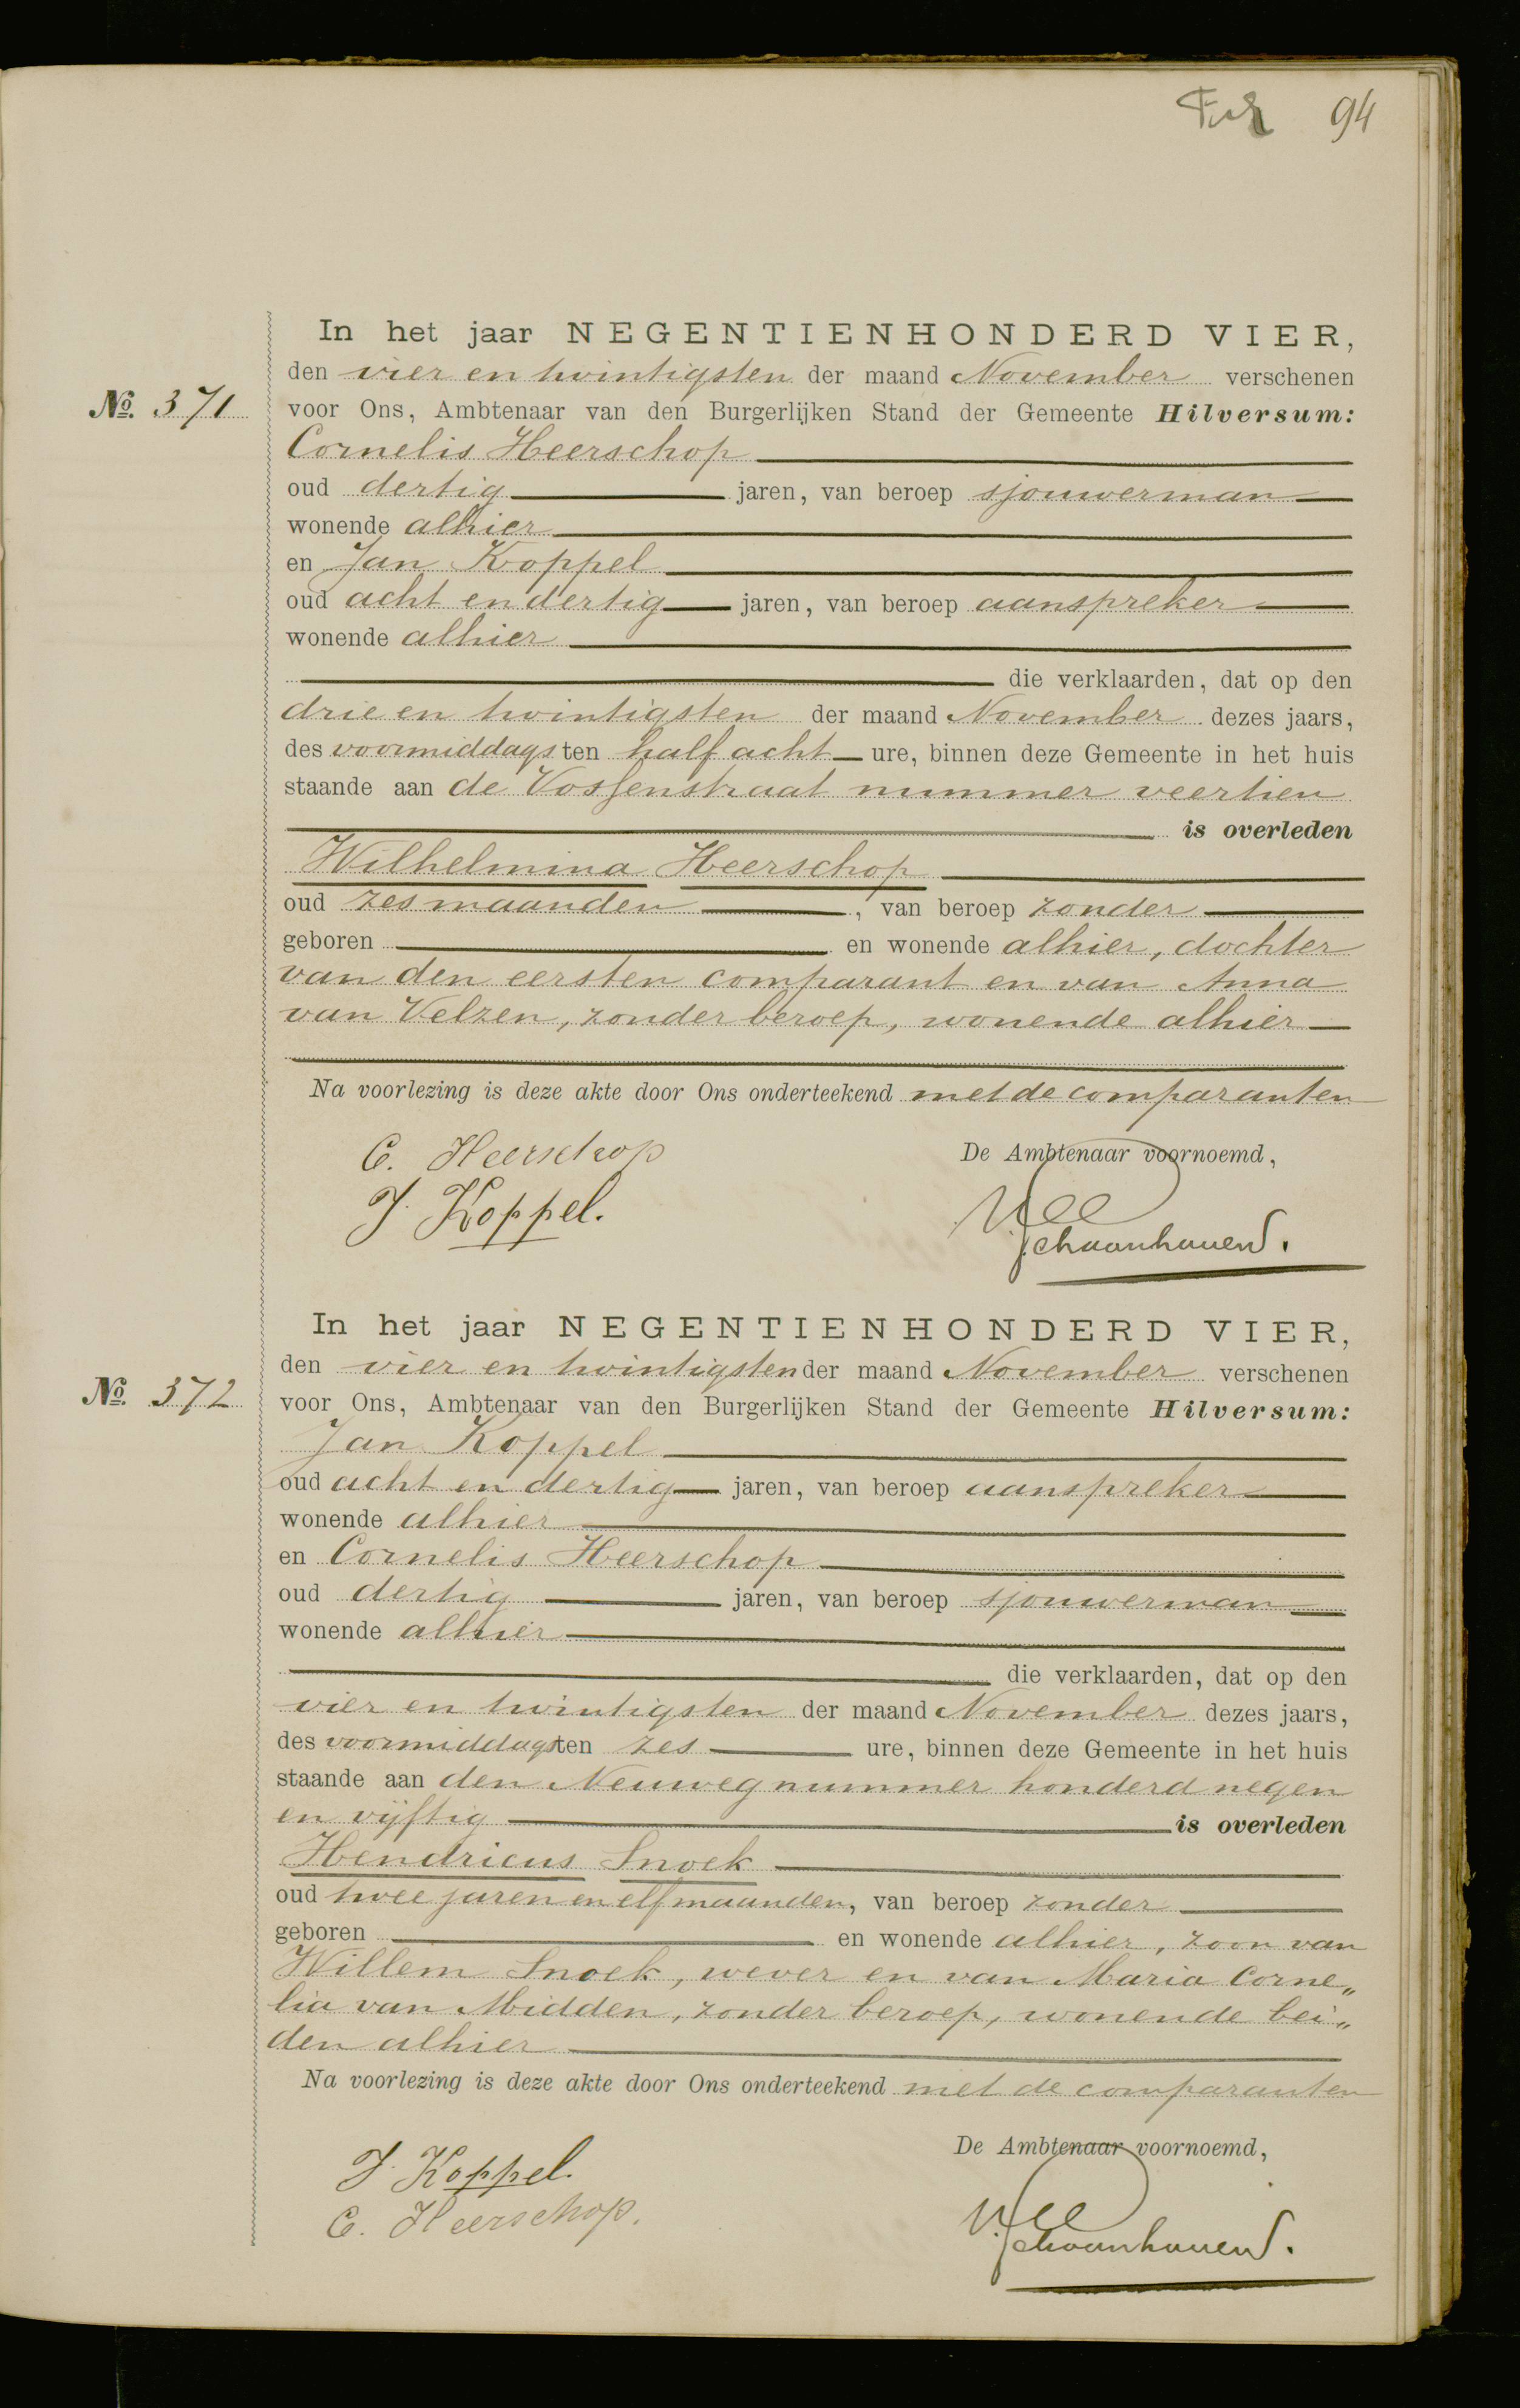 94
In het jaar NEGENTIENHONDERD VIER,
den vier en twintigsten der maand November verschenen
No. 371 voor Ons, Ambtenaar van den Burgerlijken Stand der Gemeente Hilversum:
Cornelis Heerschop
oud dertig jaren, van beroep sjouwerman
wonende alhier
en Jan Koppel
oud acht en dertig jaren, van beroep aanspreker
wonende alhier
die verklaarden, dat op den
drie en twintigsten der maand November dezes jaars,
des voormiddags ten half acht ure, binnen deze Gemeente in het huis
staande aan de Vossenstraat nummer veertien
is overleden
Wilhelmina Heerschop
oud zes maanden, van beroep zonder
geboren en wonende alhier, dochter
van den eersten comparant en van Anna
van Velzen, zonder beroep, wonende alhier
Na voorlezing is deze akte door Ons onderteekend met de comparanten
C. Heerschop
De Ambtenaar voornoemd,
J. Koppel.
In het jaar NEGENTIENHONDERD VIER,
den vier en twintigsten der maand November verschenen
No. 372 voor Ons, Ambtenaar van den Burgerlijken Stand der Gemeente Hilversum:
Jan Koppel
oud acht en dertig jaren, van beroep aanspreker
wonende alhier
en Cornelis Heerschop
oud dertig jaren, van beroep sjouwerman
wonende alhier
die verklaarden, dat op den
vier en twintigsten der maand November dezes jaars,
des voormiddags ten zes ure, binnen deze Gemeente in het huis
staande aan den Neuweg nummer honderd negen
en vijftig is overleden
Hendricus Snoek
oud twee jaren en elf maanden, van beroep zonder
geboren en wonende alhier, zoon van
Willem Snoek, wever en van Maria Corne„
lia van Midden, zonder beroep, wonende bei„
den alhier
Na voorlezing is deze akte door Ons onderteekend met de comparanten
De Ambtenaar voornoemd,
J. Koppel.
C. Heerschop.